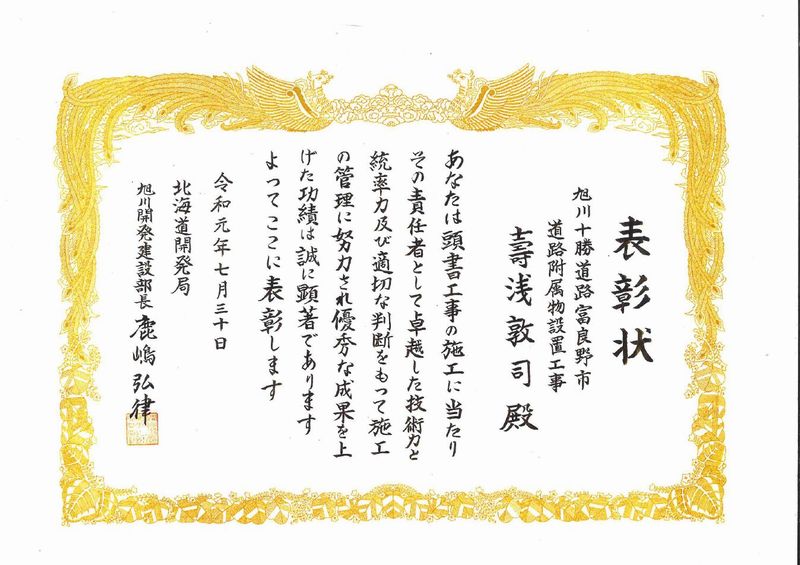 表彰状
旭川十勝道路富良野市
道路附属物設置工事
壽浅敦司殿
あなたは頭書工事の施工に当たり
その責任者として卓越した技術力と
統率力及び適切な判断をもって施工
の管理に努力され優秀な成果を上
げた功績は誠に顕著であります
よってここに表彰します
令和元年七月三十日
北海道開発局
旭川開発建設部長 鹿嶋弘律